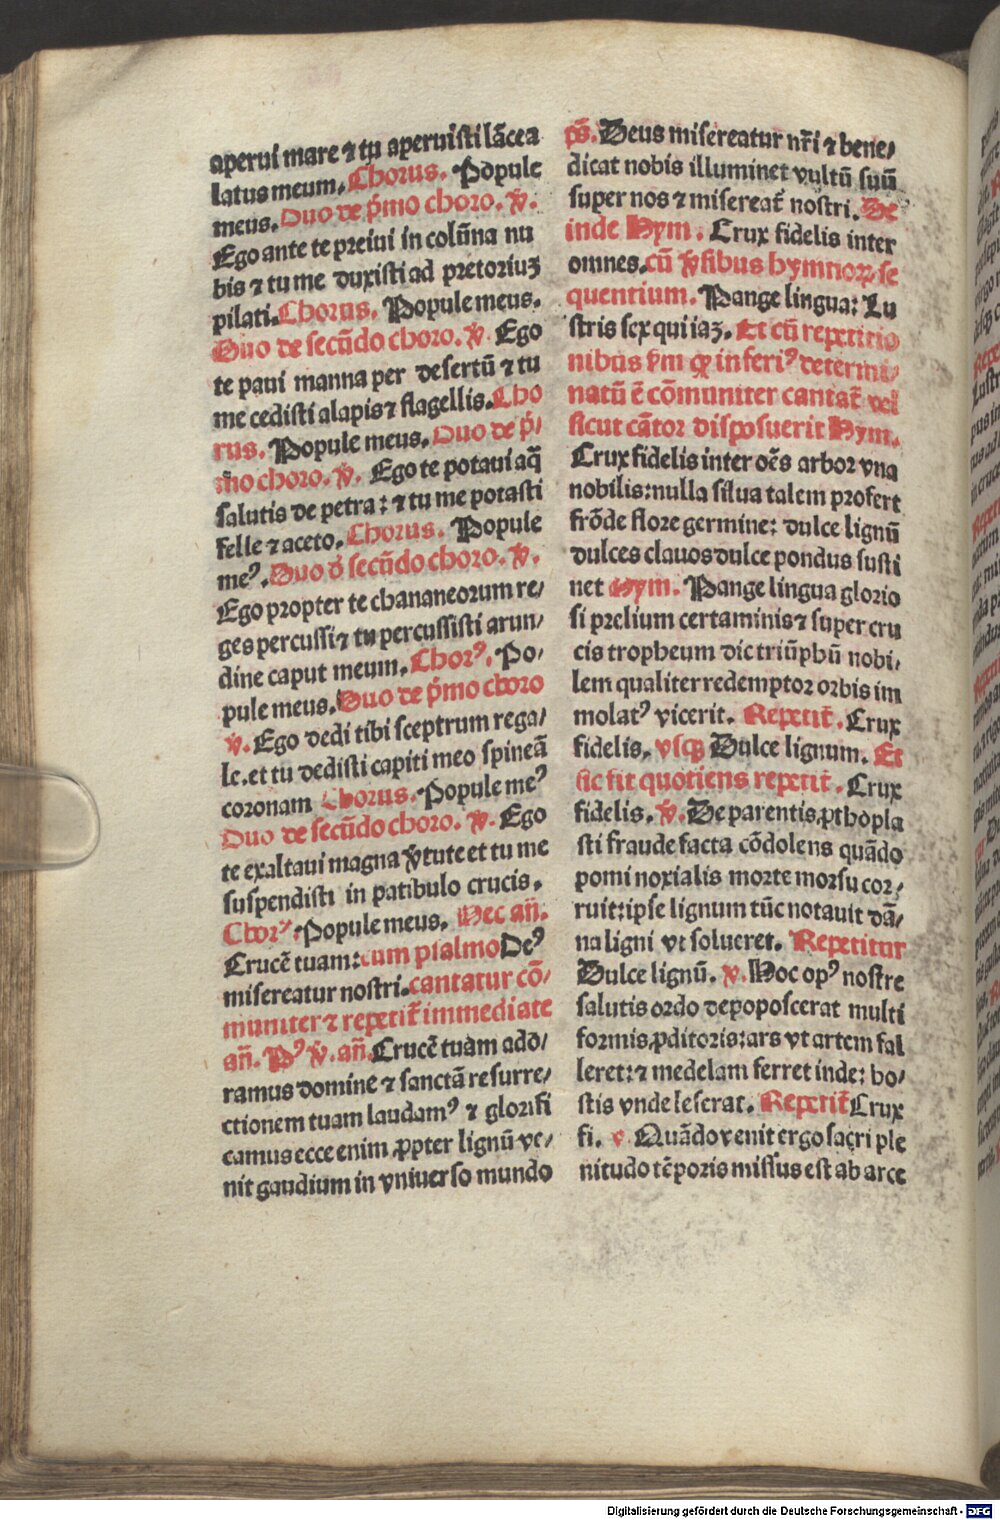 aperui mare ⁊ tu aperuisti lācea
latus meum. Chorus. Popule
meus. Duo de p̄mo choro. ℣.
Ego ante te preiui in colūna nu
bis ⁊ tu me duxisti ad pretoriuʒ
pilati. Chorus. Popule meus.
Duo de secūdo choro. ℣. Ego
te paui manna per desertū ⁊ tu
me cedisti alapis ⁊ flagellis. Cho
rus. Popule meus. Duo de p̄/
mo choro. ℣. Ego te potaui aq̄
salutis de petra: ⁊ tu me potasti
felle ⁊ aceto. Chorus. Popule
meꝰ. Duo d̄ secūdo choro. ℣.
Ego propter te chananeorum re/
ges percussi ⁊ tu percussisti arun/
dine caput meum. Chorꝰ. Po/
pule meus. Duo de p̄mo choro
℣. Ego dedi tibi sceptrum rega/
le. et tu dedisti capiti meo spineā
coronam Chorus. Popule meꝰ
Duo de secūdo choro. ℣. Ego
te exaltaui magna v̄tute et tu me
suspendisti in patibulo crucis.
Chorꝰ. Popule meus. Hec an̄.
Crucē tuam: cum psalmo Deꝰ
misereatur nostri. cantatur cō/
muniter ⁊ repetit̄ immediate
an̄. Pꝰ ℣. an̄. Crucē tuam ado/
ramus domine ⁊ sanctā resurre/
ctionem tuam laudamꝰ ⁊ glorifi
camus ecce enim ꝓpter lignū ve/
nit gaudium in vniuerso mundo
ps̄. Deus misereatur nr̄i ⁊ bene/
dicat nobis illuminet vultū suū
super nos ⁊ misereat̄ nostri. De
inde Hym. Crux fidelis inter
omnes. cū v̄sibus hymnoꝝ se
quentium. Pange lingua: Lu
stris sex qui iaʒ. Et cū repetitio
nibus v̄m ꝙ inferiꝰ determi/
natū ē cōmuniter cantat̄ vel
sicut cātor disposuerit Hym.
Crux fidelis inter oēs arbor vna
nobilis: nulla silua talem profert
frōde flore germine: dulce lignū
dulces clauos dulce pondus susti
net Hym. Pange lingua glorio
si prelium certaminis ⁊ super cru
cis tropheum dic triūphū nobi/
lem qualiter redemptor orbis im
molatꝰ vicerit. Repetit̄. Crux
fidelis. vsqꝫ Dulce lignum. Et
sic fit quotiens repetit̄. Crux
fidelis. ℣. De parentis ꝓthopla
sti fraude facta cōdolens quādo
pomi noxialis morte morsu cor/
ruit: ipse lignum tūc notauit dā/
na ligni vt solueret. Repetitur
Dulce lignū. ℣. Hoc opꝰ nostre
salutis ordo depoposcerat multi
formis ꝓditoris: ars vt artem fal
leret: ⁊ medelam ferret inde: ho/
stis vnde leserat. Repetit̄ Crux
fi. v Quādo venit ergo sacri ple
nitudo tēporis missus est ab arce
Digitalisierung gefördert durch die Deutsche Forschungsgemeinschaft - DFG